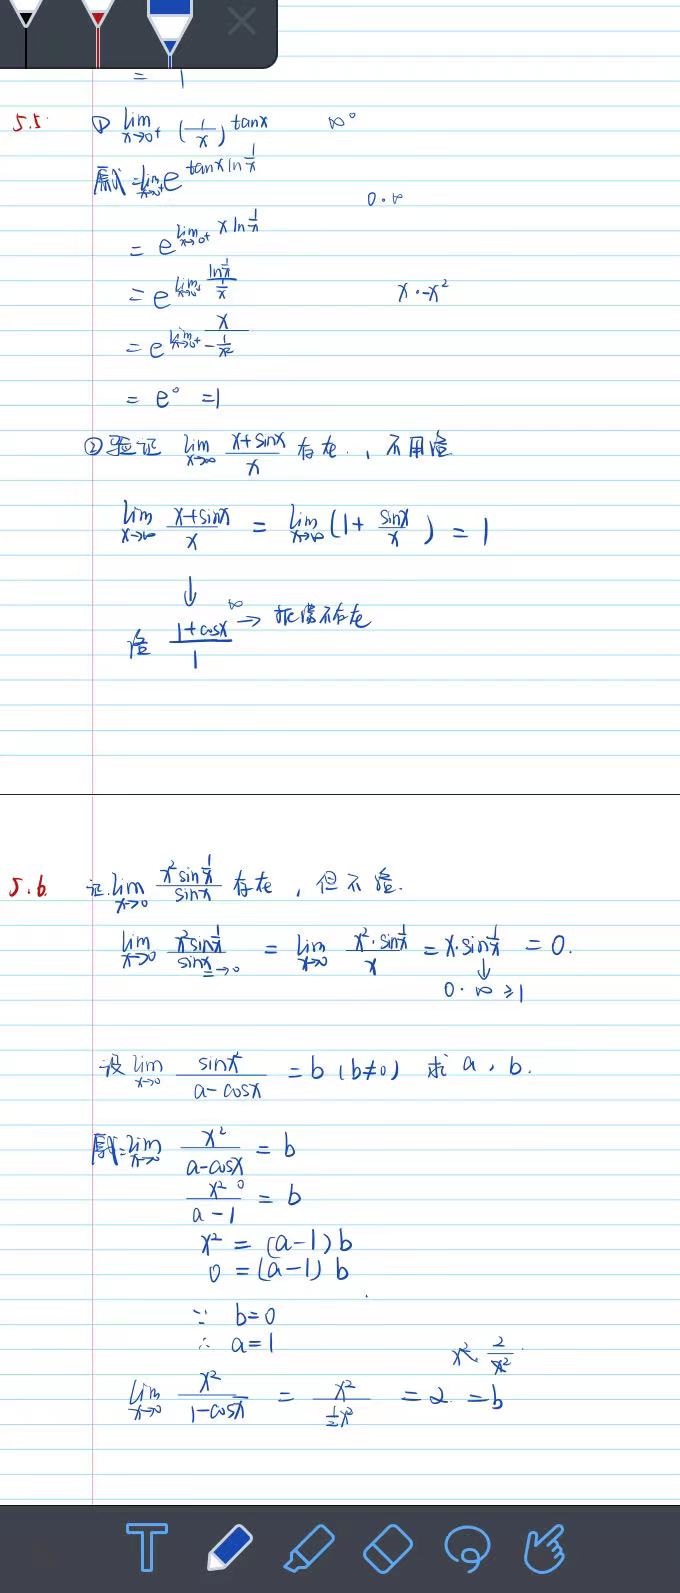 = 1
5.5 ① lim x→0⁺ (1/x)^tanx ∞°
原式=lim x→0⁺ e^tanx ln 1/x
0·∞
= e^lim x→0⁺ x ln 1/x
= e^lim x→0⁺ ln 1/x / 1/x x·-x²
= e^lim x→0⁺ x / -1/x²
= e° =1
②验证 lim x→∞ x+sinx / x 存在, 不用洛
lim x→∞ x+sinx / x = lim x→∞ (1+ sinx / x) = 1
↓
洛 1+cosx / 1 ∞ →振荡不存在
5.6 证. lim x→0 x²sin 1/x / sinx 存在, 但不洛.
lim x→0 x²sin 1/x / sinx →0 = lim x→0 x²·sin 1/x / x = x·sin 1/x = 0.
↓
0·∞ ≥1
设 lim x→0 sinx² / a-cosx = b (b≠0) 求 a, b.
原式=lim x→0 x² / a-cosx = b
x² 0 / a-1 = b
x² = (a-1)b
0 = (a-1) b
∵ b=0
∴ a=1
x². 2/x²
lim x→0 x² / 1-cosx = x² / ½x² = 2 = b
T